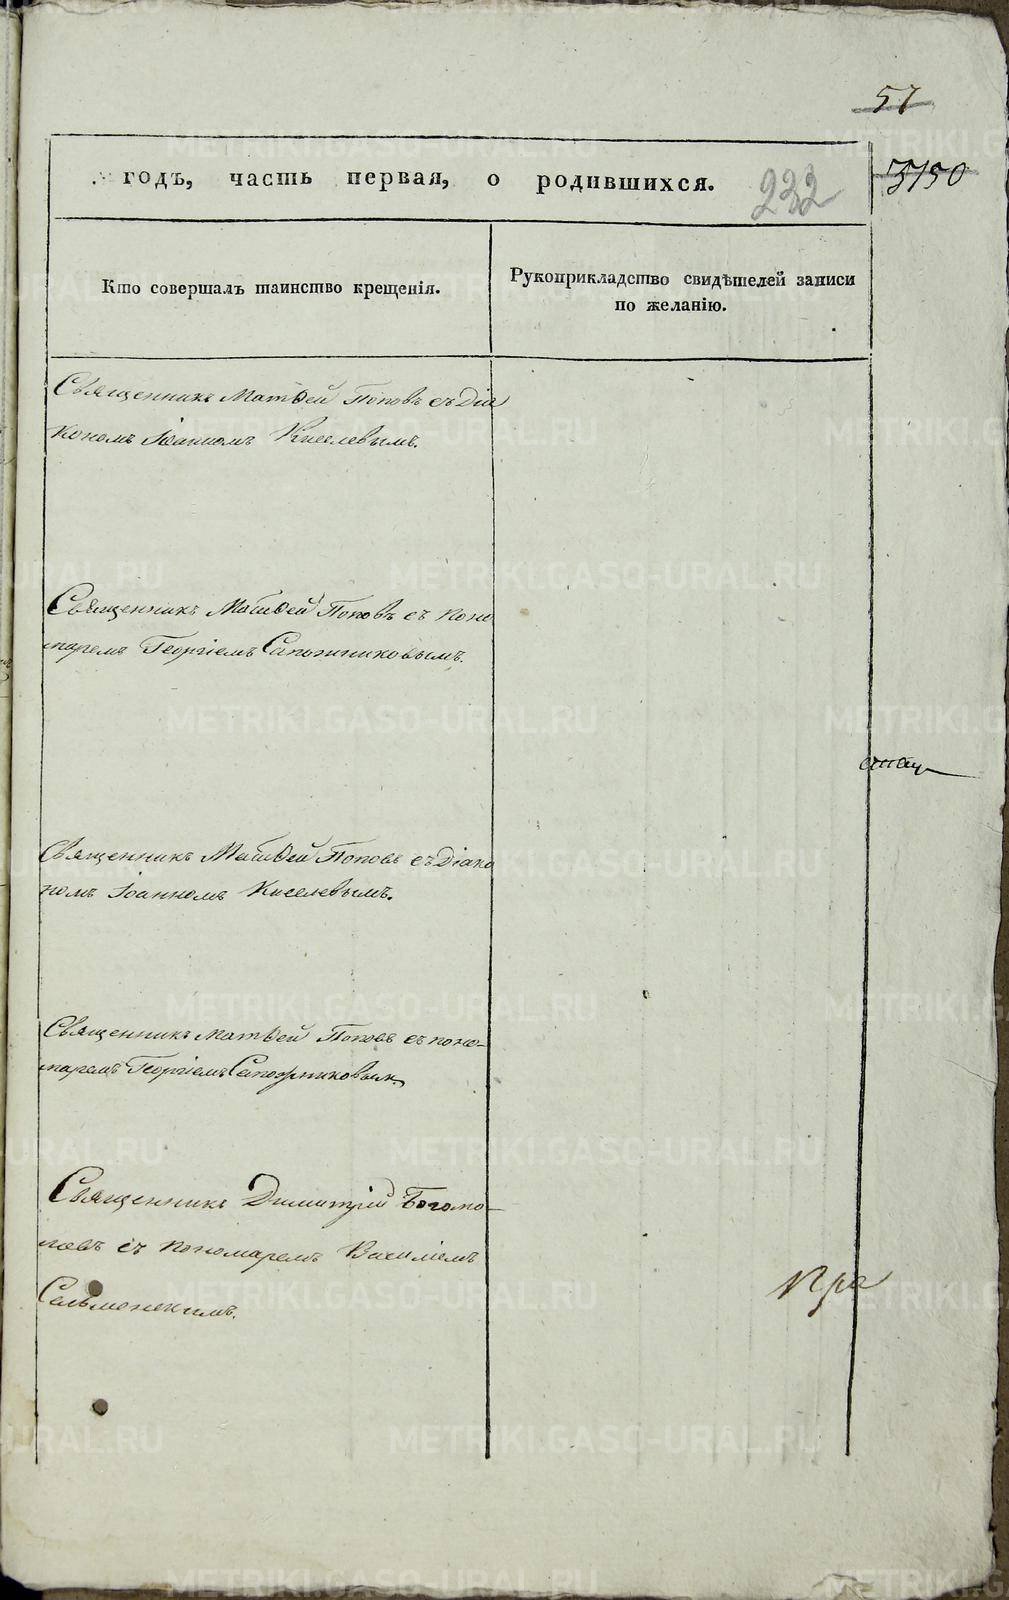 57
годъ, часть первая, о родившихся.
232
Кто совершалъ таинство крещенія.
Рукоприкладство свидѣтелей записи
по желанію.
Священникъ Матѳей Поповъ съ Діа
кономъ Іоанномъ Киселевымъ.
Священникъ Матѳей Поповъ съ поно
маремъ Георгіемъ Сапожниковымъ.
Священникъ Матѳей Поповъ съ Діако
номъ Іоанномъ Киселевымъ.
Священникъ Матѳей Поповъ съ поно-
маремъ Георгіемъ Сапожниковым.
Священникъ Димитрій Богомо-
ловъ съ пономаремъ Василіемъ
Сельменскимъ.
METRIKI.GASO-URAL.RU